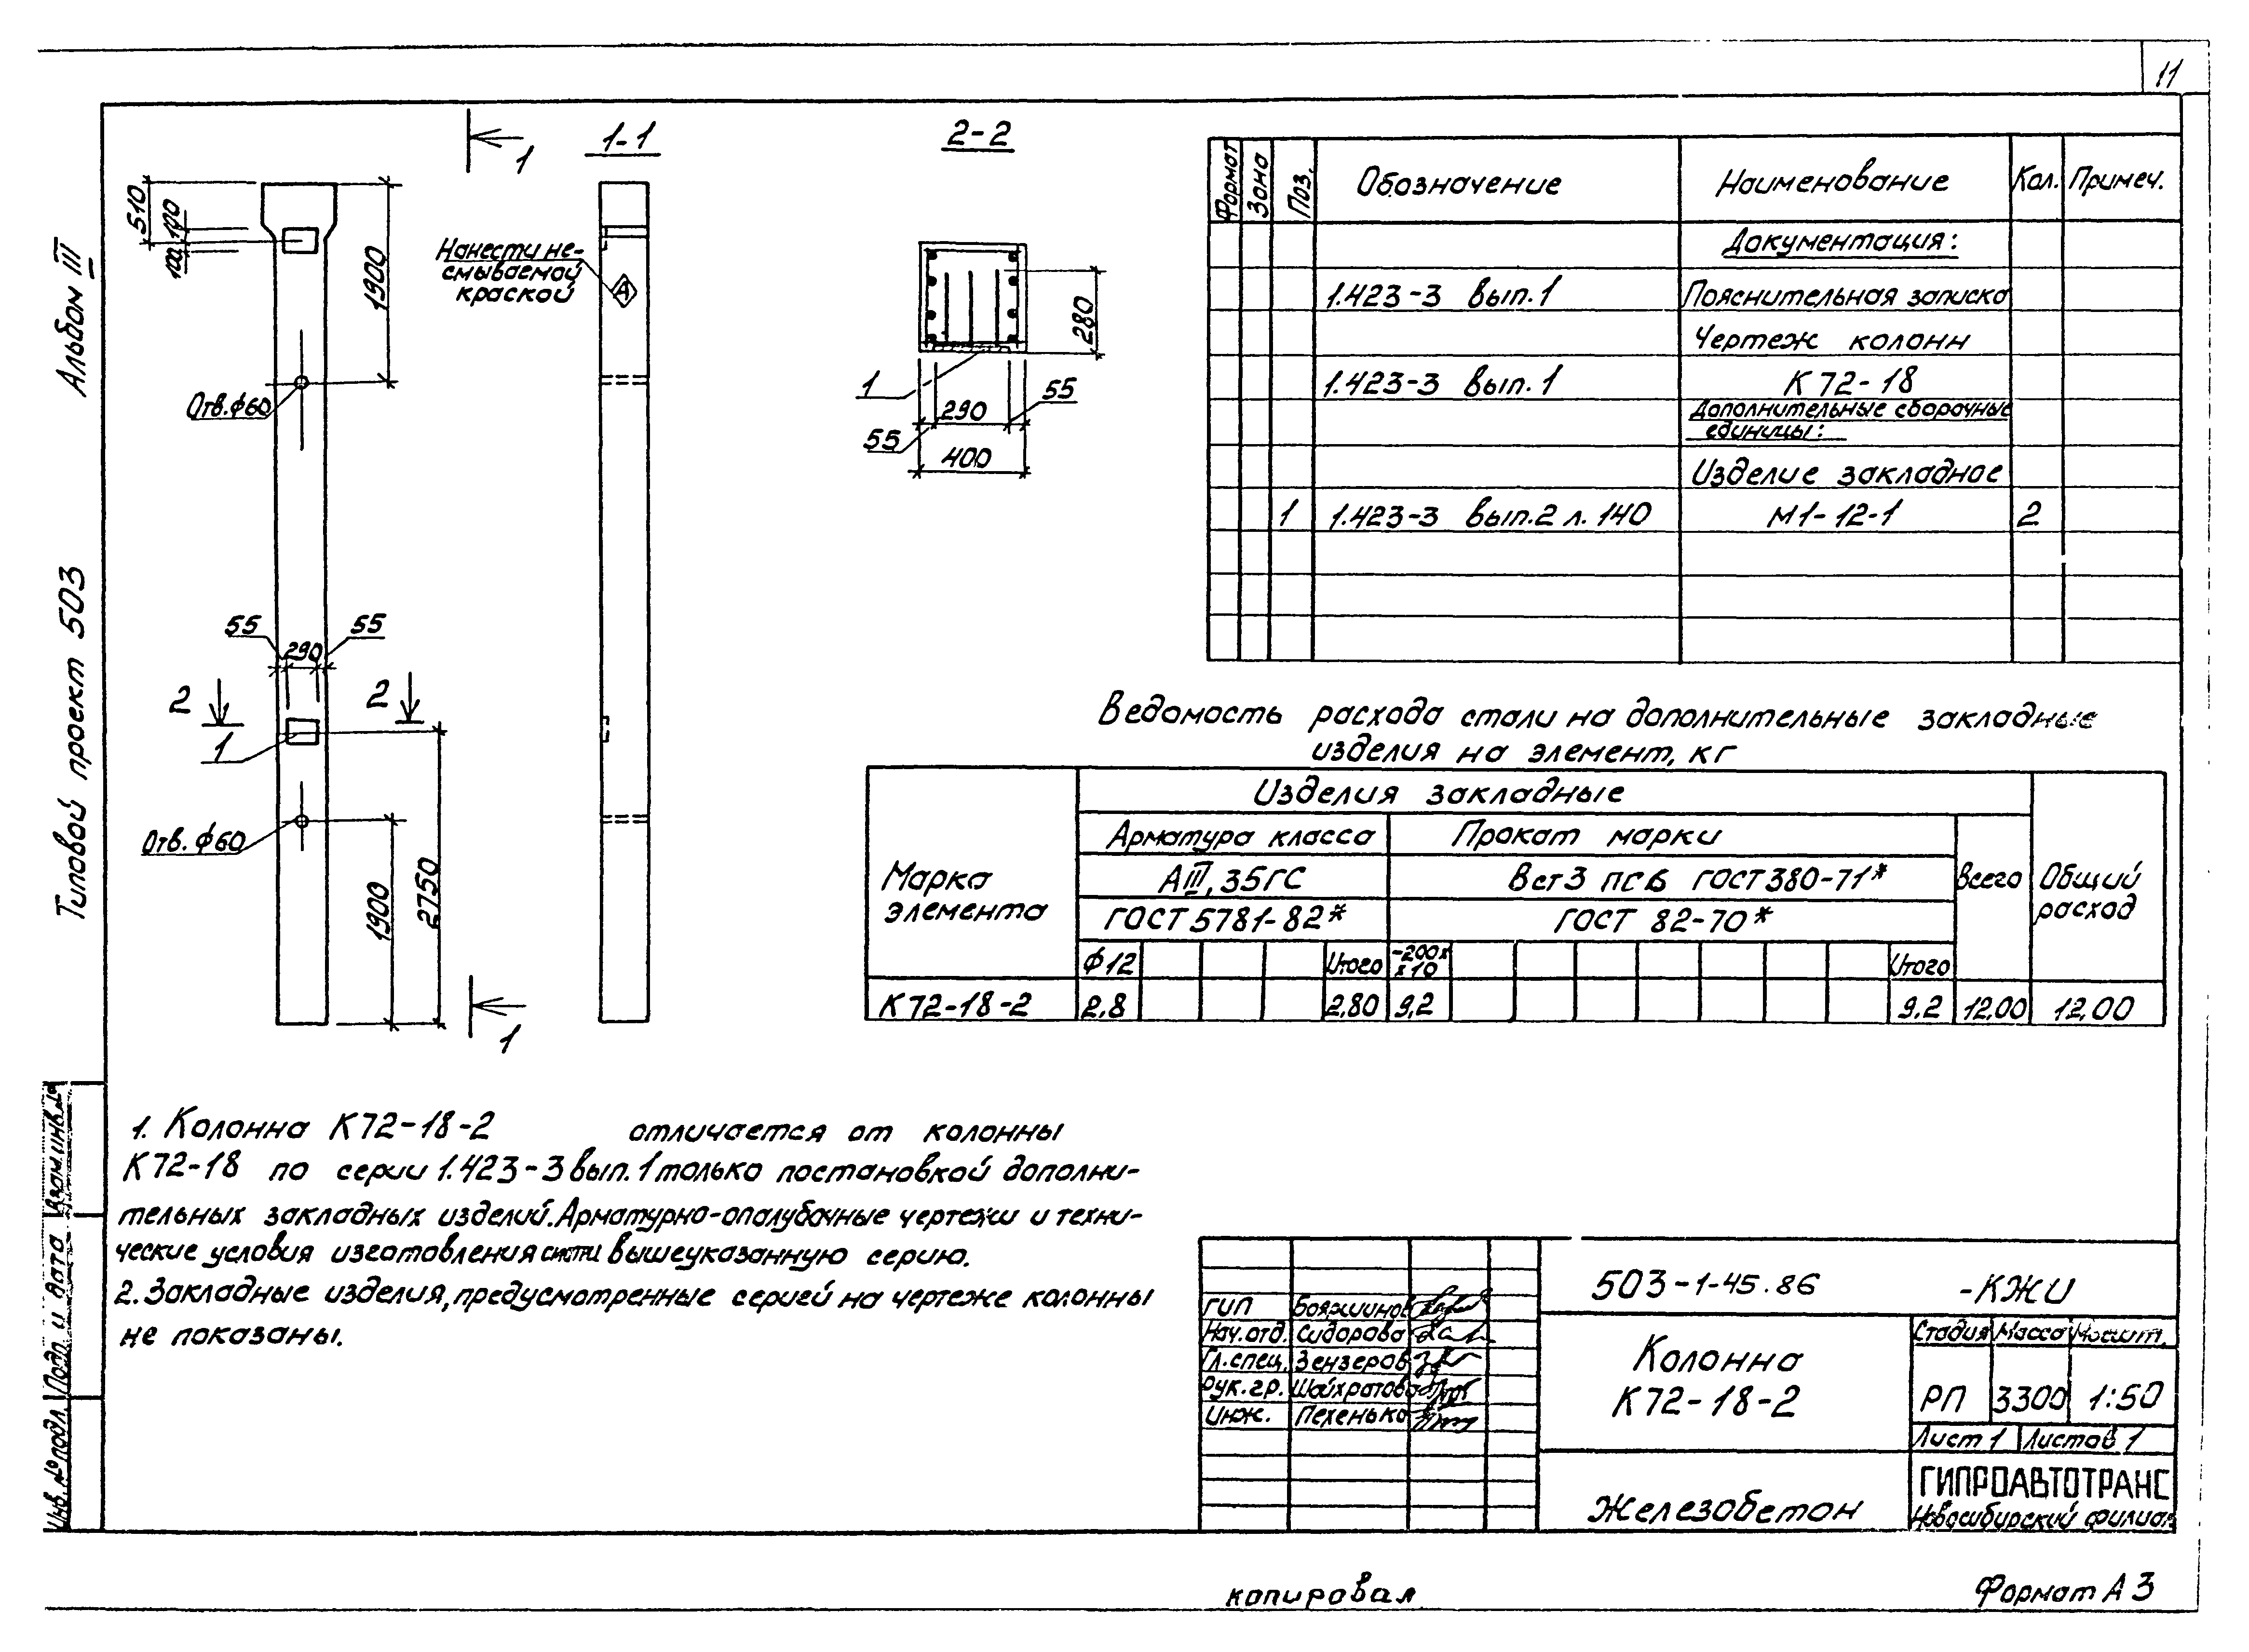 11
Альбом III
Типовой проект 503
1
1-1
2-2
510
100
100
1900
Отв. ф60
Нанести не-
смываемой
краской
А
280
1
290
55
55
400
55
290
55
2
2
1
Отв. ф60
1900
2750
1
Формат
Зона
Поз.
Обозначение
Наименование
Кол.
Примеч.
Документация:
1.423-3 вып. 1
Пояснительная записка
Чертеж колонн
1.423-3 вып. 1
К 72-18
Дополнительные сборочные
единицы:
Изделие закладное
1
1.423-3 вып. 2 л. 140
М1-12-1
2
Ведомость расхода стали на дополнительные закладные
изделия на элемент, кг
Марка
элемента
Изделия закладные
Арматура класса
Прокат марки
Всего
Общий
расход
АIII, 35ГС
Вст3 пс6 ГОСТ 380-71*
ГОСТ 5781-82*
ГОСТ 82-70*
Ф12
Итого
-200х
х10
Итого
К72-18-2
2,8
2,80
9,2
9,2
12,00
12,00
1. Колонна К72-18-2 отличается от колонны
К72-18 по серии 1.423-3 вып. 1 только постановкой дополни-
тельных закладных изделий. Арматурно-опалубочные чертежи и техни-
ческие условия изготовления вышеуказанную серию.
2. Закладные изделия, предусмотренные серией на чертеже колонны
не показаны.
Взам. инв. №
Подп. и дата
Инв. № подл.
ГИП
Бояршинов
Нач. отд.
Сидорова
Гл. спец.
Зензеров
Рук. гр.
Шайхратова
Инж.
Пехенько
503-1-45.86 -КЖИ
Колонна
К72-18-2
Стадия
Масса
Масшт.
РП
3300
1:50
Лист 1
Листов 1
Железобетон
ГИПРОАВТОТРАНС
Новосибирский филиал
копировал
Формат А3